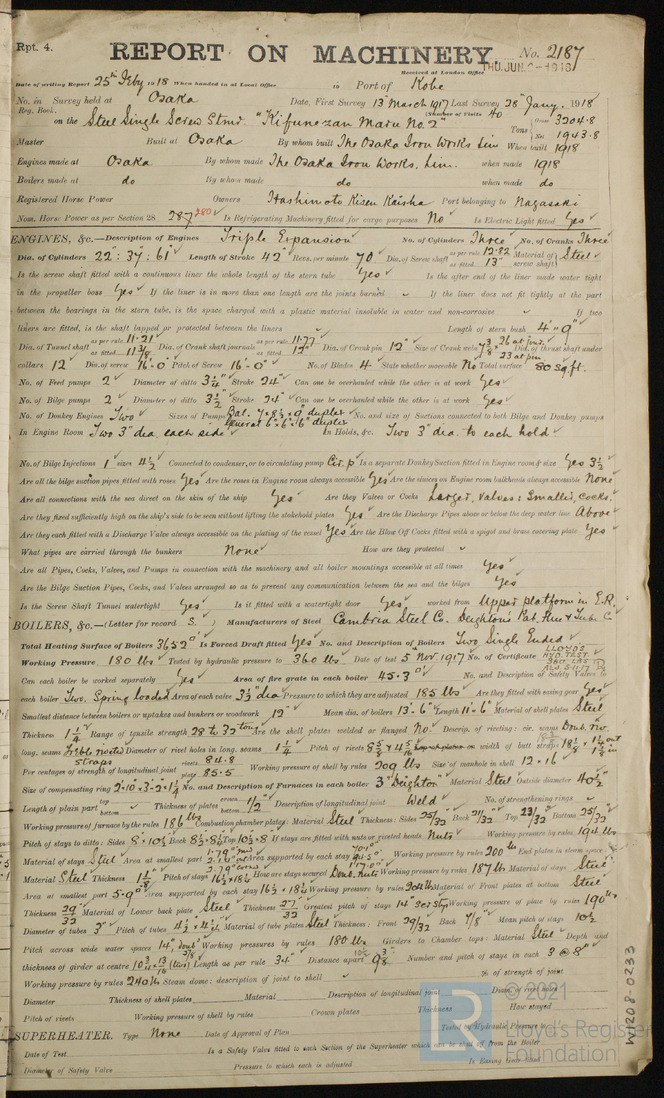 Rpt. 4.
REPORT ON MACHINERY. No. 2187
Received at London Office THU. JUN. 1918
Date of writing Report 25th Feby 1918 When handed in at Local Office in Port of Kobe
No. in Survey held at Osaka Date, First Survey 13 March 1917 Last Survey 28 Jany. 1918
Reg. Book. (Number of Visits 40
on the Steel Single Screw Stmr. "Kifunezan Maru No. 2" Tons Gross 3204.8 Net 1943.8
Master Built at Osaka By whom built The Osaka Iron Works Lim When built 1918
Engines made at Osaka By whom made The Osaka Iron Works, Lim. when made 1918
Boilers made at do By whom made do when made do
Registered Horse Power Owners Hashimoto Kisen Kaisha Port belonging to Nagasaki
Nom. Horse Power as per Section 28 287 280 Is Refrigerating Machinery fitted for cargo purposes No Is Electric Light fitted Yes
ENGINES, &c.—Description of Engines Triple Expansion No. of Cylinders Three No. of Cranks Three
Dia. of Cylinders 22: 37: 61 Length of Stroke 42" Revs. per minute 70 Dia. of Screw shaft as per rule 12.82 as fitted 13" Material of screw shaft Steel
Is the screw shaft fitted with a continuous liner the whole length of the stern tube Yes Is the after end of the liner made water tight
in the propeller boss Yes If the liner is in more than one length are the joints burned If the liner does not fit tightly at the part
between the bearings in the stern tube, is the space charged with a plastic material insoluble in water and non-corrosive If two
liners are fitted, is the shaft lapped or protected between the liners Length of stern bush 4'-9"
Dia. of Tunnel shaft as per rule 11.21 as fitted 11 3/8 Dia. of Crank shaft journals as per rule 11.77 as fitted 12" Dia. of Crank pin 12" Size of Crank webs Dia. of thrust shaft under
collars 12" Dia. of screw 16'-0" Pitch of Screw 16'-0" No. of Blades 4 State whether moveable No Total surface 80 sq ft.
No. of Feed pumps 2 Diameter of ditto 3 1/4" Stroke 24" Can one be overhauled while the other is at work Yes
No. of Bilge pumps 2 Diameter of ditto 3 1/2" Stroke 24" Can one be overhauled while the other is at work Yes
No. of Donkey Engines Two Sizes of Pumps Bal. 7 x 8 1/2 x 9" duplex General 6 x 6 x 6" duplex No. and size of Suctions connected to both Bilge and Donkey pumps
In Engine Room Two 3" dia each side In Holds, &c. Two 3" dia. to each hold
No. of Bilge Injections 1 sizes 4 1/2 Connected to condenser, or to circulating pump Cir. p Is a separate Donkey Suction fitted in Engine room & size Yes 3 1/2
Are all the bilge suction pipes fitted with roses Yes Are the roses in Engine room always accessible Yes Are the sluices on Engine room bulkheads always accessible None
Are all connections with the sea direct on the skin of the ship Yes Are they Valves or Cocks Larger, valves: Smaller, cocks.
Are they fixed sufficiently high on the ship's side to be seen without lifting the stokehold plates Yes Are the Discharge Pipes above or below the deep water line Above
Are they each fitted with a Discharge Valve always accessible on the plating of the vessel Yes Are the Blow Off Cocks fitted with a spigot and brass covering plate Yes
What pipes are carried through the bunkers None How are they protected
Are all Pipes, Cocks, Valves, and Pumps in connection with the machinery and all boiler mountings accessible at all times Yes
Are the Bilge Suction Pipes, Cocks, and Valves arranged so as to prevent any communication between the sea and the bilges Yes
Is the Screw Shaft Tunnel watertight Yes Is it fitted with a watertight door Yes worked from Upper platform in E.R.
BOILERS, &c.—(Letter for record S.) Manufacturers of Steel Cambria Steel Co. Deighton's Pat. Flue & Tube Co
Total Heating Surface of Boilers 3652 Is Forced Draft fitted Yes No. and Description of Boilers Two Single Ended
Working Pressure 180 lbs Tested by hydraulic pressure to 360 lbs Date of test 5 Nov. 1917 No. of Certificate LLOYDS HYD. TEST. 360 LBS
Can each boiler be worked separately Yes Area of fire grate in each boiler 45.3 No. and Description of Safety Valves to
each boiler Two. Spring loaded Area of each valve 3 1/2" dia Pressure to which they are adjusted 185 lbs Are they fitted with easing gear Yes
Smallest distance between boilers or uptakes and bunkers or woodwork 19" Mean dia. of boilers 13'-6" Length 11'-6" Material of shell plates Steel
Thickness 1 1/4 Range of tensile strength 28 to 32 tons Are the shell plates welded or flanged No. Descrip. of riveting: cir. seams Doub. riv.
long. seams Treble riveted straps Diameter of rivet holes in long. seams 1 1/4 Pitch of rivets width of butt straps
Per centages of strength of longitudinal joint rivets 84.8 plate 85.5 Working pressure of shell by rules 209 lbs Size of manhole in shell 12 x 16
Size of compensating ring No. and Description of Furnaces in each boiler 3 "Deighton" Material Steel Outside diameter 40 1/2"
Length of plain part top bottom Thickness of plates crown bottom 1/2 Description of longitudinal joint Weld No. of strengthening rings
Working pressure of furnace by the rules 186 lbs Combustion chamber plates: Material Steel Thickness: Sides 25/32 Back 21/32 Top 23/32 Bottom 25/32
Pitch of stays to ditto: Sides 8 x 10 1/2 Back 8 1/2 x 8 1/4 Top 10 1/2 x 8 If stays are fitted with nuts or riveted heads Nuts Working pressure by rules 194 lbs
Material of stays Steel Area at smallest part Area supported by each stay Working pressure by rules 200 lbs End plates in steam space:
Material Steel Thickness Pitch of stays 16 1/2 x 18 1/4 How are stays secured Doub. Nuts Working pressure by rules 187 lbs Material of stays Steel
Area at smallest part 5.90 Area supported by each stay 16 1/2 x 18 1/4 Working pressure by rules 202 lbs Material of Front plates at bottom Steel
Thickness 29/32 Material of Lower back plate Steel Thickness 27/32 Greatest pitch of stays Working pressure of plate by rules 190 lbs
Diameter of tubes 3" Pitch of tubes 4 1/2 x 4 1/4 Material of tube plates Steel Thickness: Front 29/32 Back 7/8" Mean pitch of stays 10 1/2
Pitch across wide water spaces 14" Working pressures by rules 180 lbs Girders to Chamber tops: Material Steel Depth and
thickness of girder at centre Length as per rule 34" Distance apart Number and pitch of stays in each 3 @ 8"
Working pressure by rules 240 lbs Steam dome: description of joint to shell % of strength of joint
Diameter Thickness of shell plates Material Description of longitudinal joint Diam. of rivet holes
Pitch of rivets Working pressure of shell by rules Crown plates Thickness How stayed
SUPERHEATER. Type None Date of Approval of Plan Tested by Hydraulic Pressure to
Date of Test Is a Safety Valve fitted to each Section of the Superheater which can be shut off from the Boiler
Diameter of Safety Valve Pressure to which each is adjusted Is Easing Gear fitted
W1208-0233
© 2021
Lloyd's Register
Foundation